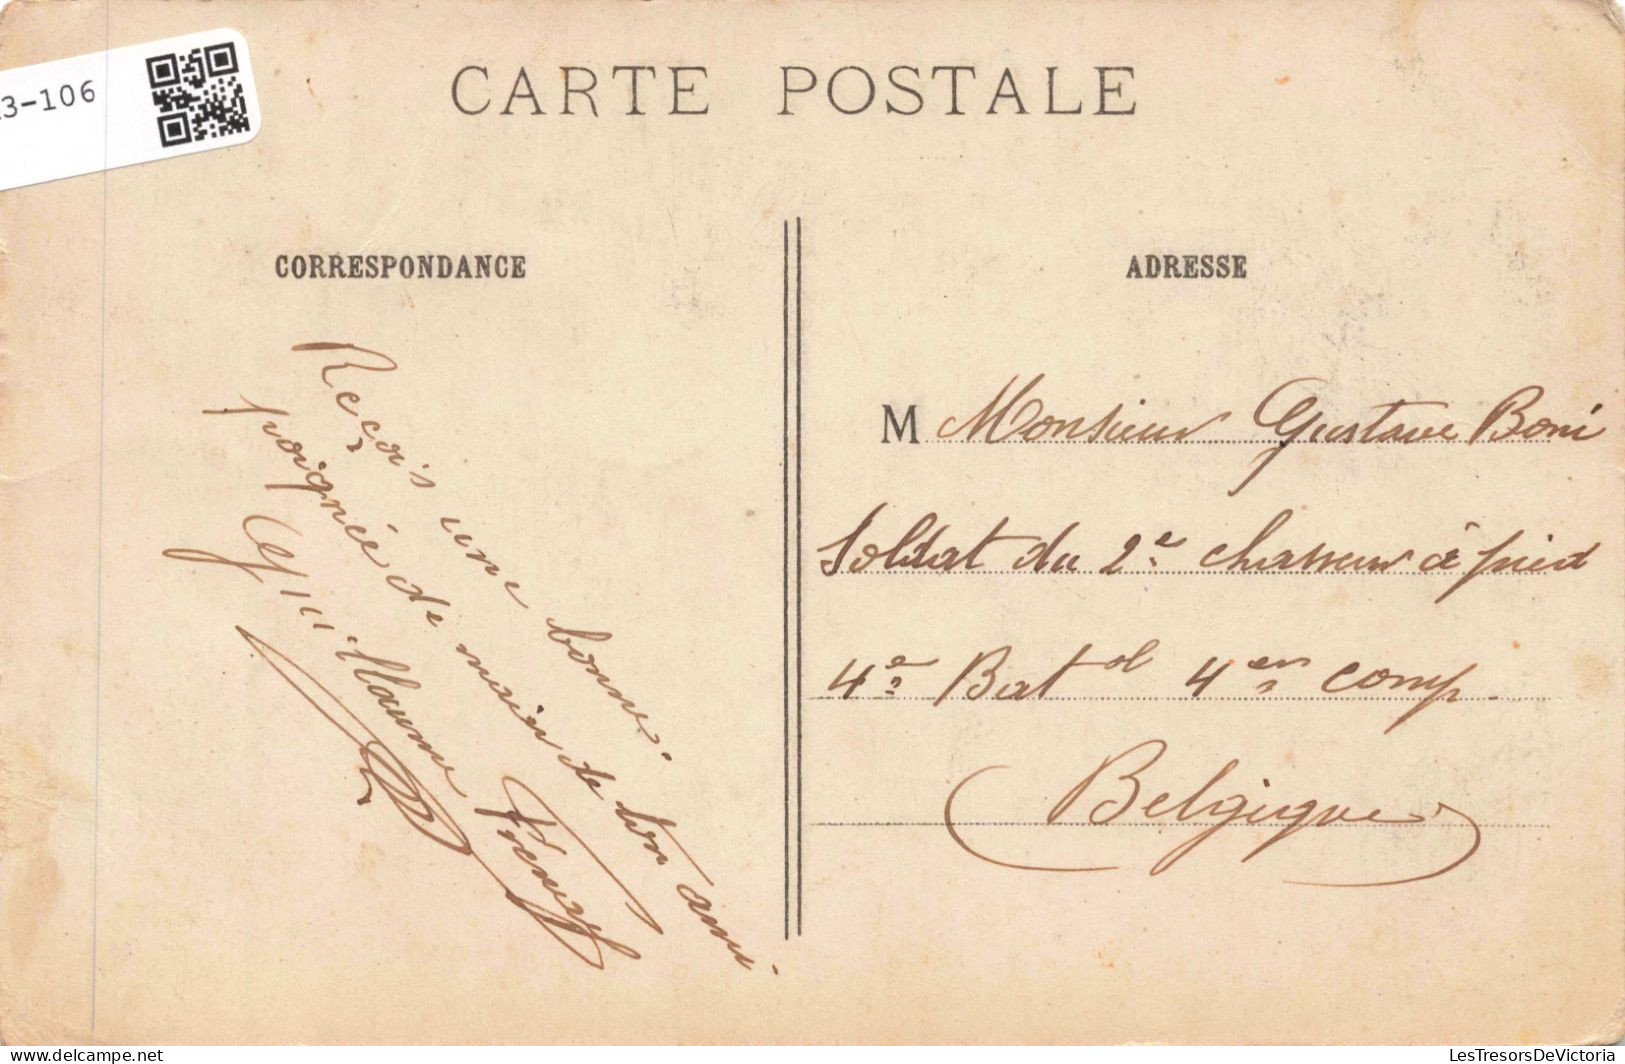 3-106
CARTE POSTALE
CORRESPONDANCE
Reçois une bonne
poignée de main de ton ami
Guillaume
ADRESSE
M Monsieur Gustave Boni
Soldat du 2e chasseur à pied
4e Bat ol 4em comp.
(Belgique)
LesTresorsDeVictoria
www.delcampe.net